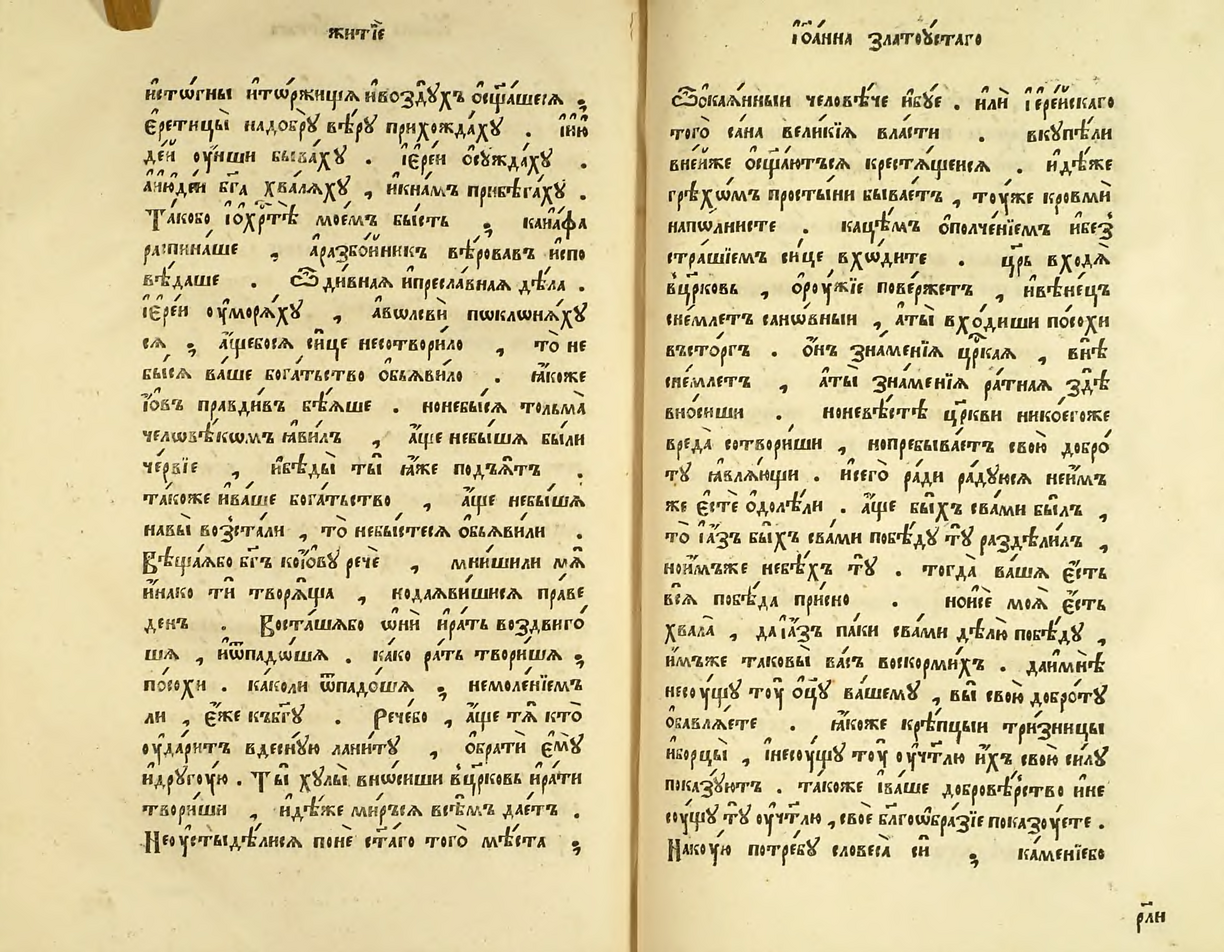 житїе
и҆стѡ́гны и҆тѡржи́щꙗ и҆возд́ꙋхъ ѡ҆сщ҃а́шесѧ ;
є҆ретицы̀ надо́брꙋ вѣ́рꙋ прихожда́хꙋ . і҆ию
де́и оу҆́чши быва́хꙋ . і҆є҆ре́и ѡ҆сꙋжда́хꙋ .
а҆июде́и бг҃а хвалѧ́хꙋ , и҆кна́мъ прибѣга́хꙋ .
Тако́бо і҆ѡ҆хр҇тѣ̀ мое́мъ бы́сть ; каиа́фа
распина́ше , а҆разбо́йникъ вѣ́ровавъ и҆спо
вѣ́даше . Ѽ ди́внаѧ и҆пресла́внаѧ дѣ́ла .
і҆є҆ре́и оу҆морѧ́хꙋ , а҆волсви́ пѡклѡнѧ́хꙋ
сѧ ; а҆́щебосѧ си́це несотвори́ло , то̀ не
бы́сѧ ва́ше бога́тьство ѡ҆бьѧви́ло . ꙗ҆́коже
і҆́овъ пра́вдивъ бѣ́ѧше . нонебы́сѧ тольма̀
человѣ́кѡмъ ꙗ҆ви́лъ , а҆́ще небы́шѧ бы́ли
че́рвїе , и҆бѣ́ды ты̀ ꙗ҆́же подъѧ́тъ .
тако́же и҆ва́ше бога́тьство , а҆́ще небы́шѧ
навы̀ возста́ли , то̀ небы́стесѧ ѡ҆бьѧви́ли .
Вѣща́ѧбо бг҃ъ кої҆́овꙋ речѐ , мни́шили мѧ̀
и҆́нако тѝ творѧ́ща , нодаѧви́шисѧ пра́ве
денъ . Воста́шѧбо ѡ҆нѝ и҆ра́ть воздвиго́
шѧ , и҆ѿпадо́шѧ . ка́ко ра́ть твори́шѧ ;
по́сохи . ка́коли ѿпадо́шѧ ; немоле́нїемъ
ли , є҆́же къбг҃ꙋ . Рече́бо , а҆́ще тѧ̀ кто̀
оу҆да́ритъ вдеснꙋ́ю лани́тꙋ , ѡ҆братѝ є҆мꙋ̀
и҆дрꙋгоую . Ты̀ хꙋлы̀ вно́сиши вцр҃ковь и҆ра́ти
твори́ши , и҆дѣ́же ми́ръсѧ всѣ́мъ дае́тъ .
Неоу҆стыдѣ́лисѧ понѐ ст҃а́го того̀ мѣ́ста ;
І҆ѡ҆а́нна златоꙋ́стаго
Ѽ ѡ҆каѧ́нныи человѣ́че и҆бꙋ́е . и҆лѝ і҆ере́йскаго
того̀ са́на вели́кїѧ вла́сти . вкꙋпѣ́ли
вне́йже ѡ҆сщ҃а́ютъсѧ крестѧ́щеисѧ . и҆дѣ́же
грѣхѡ́мъ просты́ни быва́етъ , тоу́же кровмѝ
напо́лнисте . кацѣ́мъ ѡ҆полче́нїемъ и҆без̾
стра́шїемъ си́це вхо́дите . цр҃ь входѧ̀
вцр҃ковь , ѻ҆роу́жїе пове́ржетъ , и҆вѣне́цъ
сне́млетъ сано́вныи , а҆ты̀ вхо́диши по́сохи
въсто́ргъ . ѻ҆́нъ зна́менїѧ цр҇каѧ , внѣ̀
сне́млетъ , а҆ты̀ зна́менїѧ ра́тнаѧ здѣ̀
вно́сиши . ноневѣ́стѣ цр҃кви нико́егоже
вреда̀ сотвори́ши , нопребыва́етъ свою̀ добро́
тꙋ ꙗ҆влѧ́ющи . и҆сего̀ ра́ди ра́дꙋюсѧ неи҆́мъ
же є҆стѐ ѡ҆долѣ́ли . а҆́ще бы́хъ сва́ми бы́лъ ,
то̀ і҆а҆́зъ бы́хъ сва́ми побѣ́дꙋ тꙋ̀ раздѣли́лъ ,
нои҆́мъже небѣ́хъ тꙋ̀ . тогда̀ ва́шѧ є҆́сть
всѧ̀ побѣ́да при́сно . нои҆сѐ моѧ̀ є҆́сть
хвала̀ , даі҆а҆́зъ па́ки сва́ми дѣлю̀ побѣ́дꙋ ,
и҆́мъже таковы̀ ва́съ воскорми́хъ . даи҆мнѣ̀
несоу́щꙋ тоу̀ оц҃ꙋ̀ ва́шемꙋ , вы̀ свою̀ добро́тꙋ
ѡ҆бавлѧ́ете . ꙗ҆́коже крѣ́пцыи три́зницы
и҆борцы̀ , і҆несоу́щꙋ тоу̀ оу҆чт҃лю и҆́хъ свою̀ си́лꙋ
пока́зꙋютъ . тако́же і҆ва́ше добровѣ́рство и҆не
соу́щꙋ тꙋ̀ оу҆чт҃лю , своѐ бл҃гоѡ҆бра́зїе показоу́ете .
Накоую потре́бꙋ словеса̀ сѝ ; ка́менїебо
рл҃и